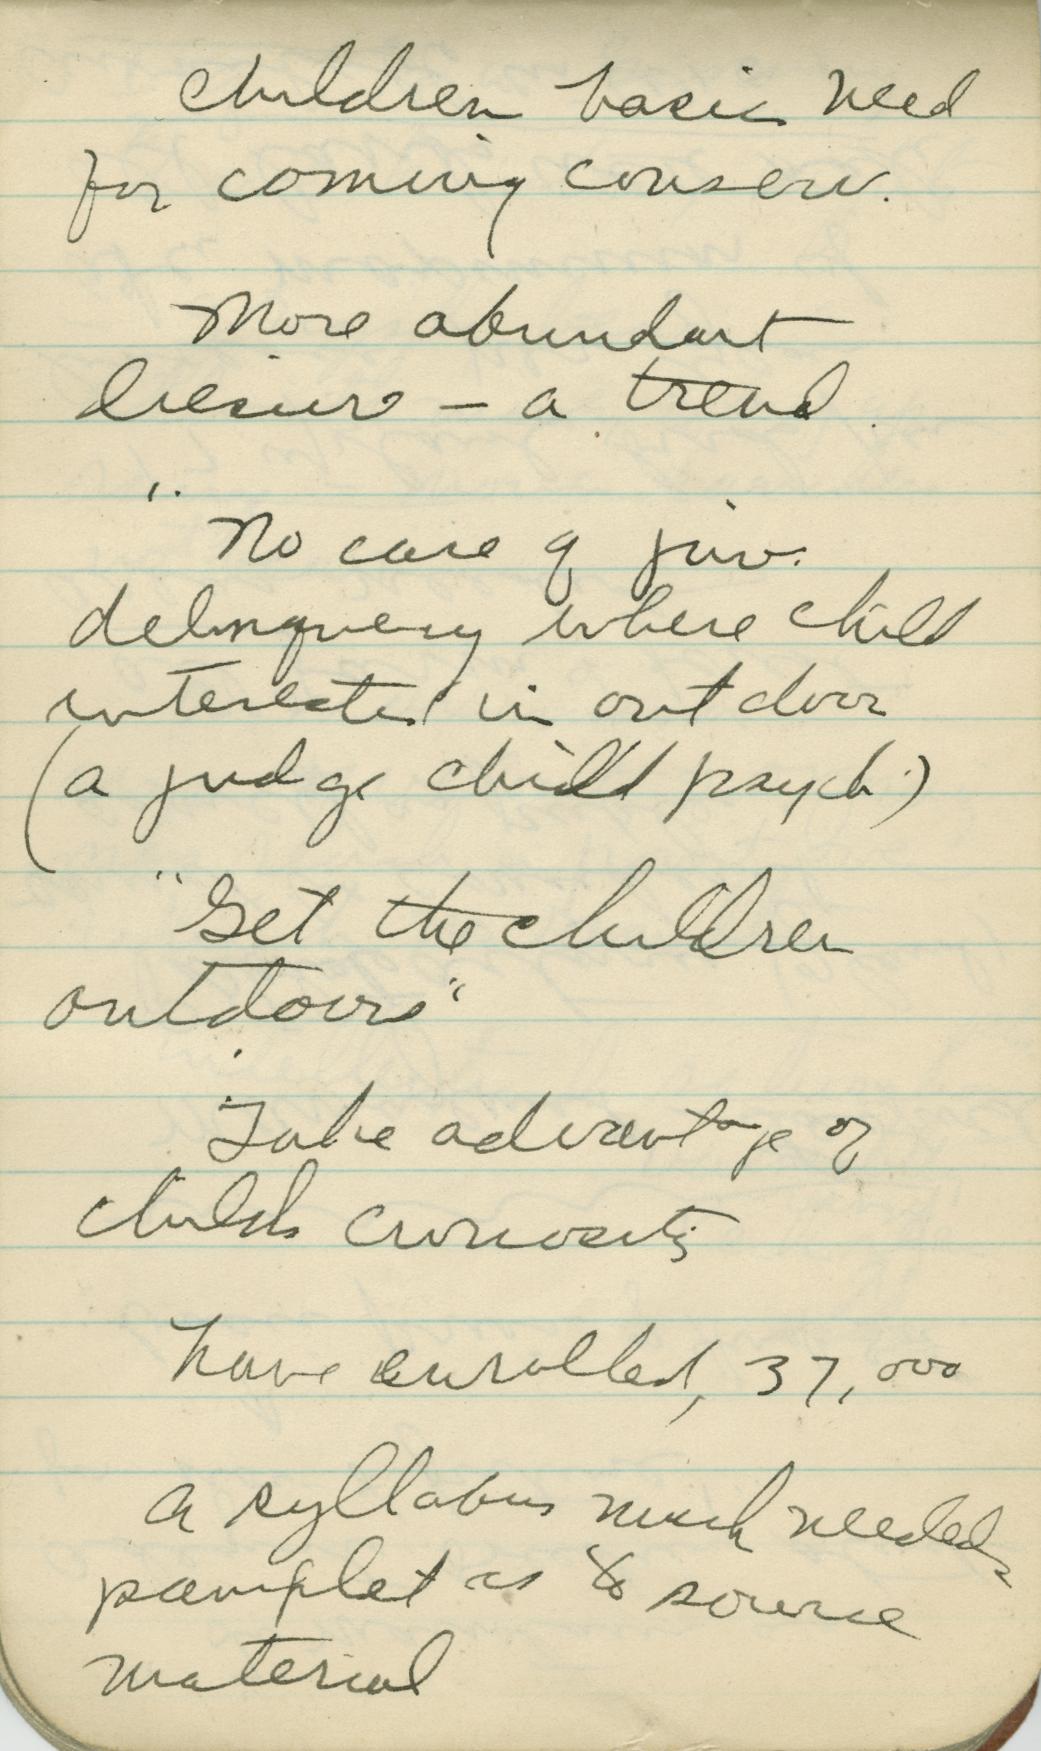 Children basic need
for coming conserv.
More abundant
liesure – a trend
"No case of juv.
delinquency where child
interested in outdoor
(a judge child psych.)
"Get the children
outdoors"
Take advantage of
childs curiosity
have enrolled, 37,000
a syllabus much needed,
pamplet as & source
material